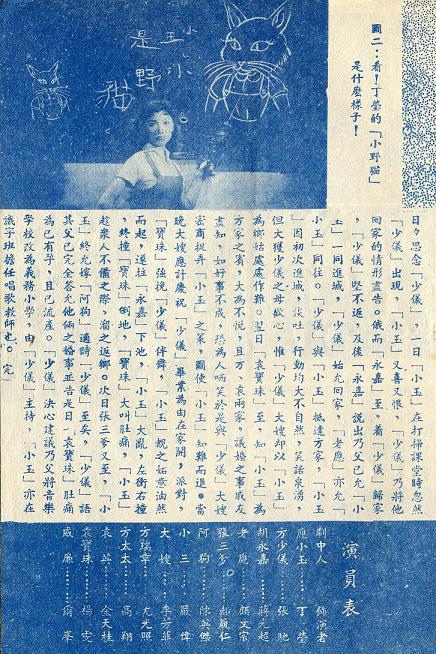 圖二：看！丁瑩的「小野貓」
是什麼樣子！
小玉是
小野貓
日夕思念「少儀」，一日「小玉」在打掃課堂時忽然
「少儀」出現，「小玉」又喜又恨，「少儀」乃將他
回家的情形盡告。俄而「永嘉」至，着「少儀」歸家
，「少儀」堅不返，及後「永嘉」說出乃父已允「小
玉」一同進城，「少儀」始允回家，「老應」亦允「
小玉」同往。「少儀」與「小玉」抵達方家，「小玉
」因初次進城，談吐，行動均大不自然，笑話泉湧，
但大獲少儀之母歡心，惟「少儀」大嫂却以「小玉」
為鄉姑處處作難。翌日「袁寶珠」至，知「小玉」為
方家之賓，大為不悅，且方、袁兩家，議婚之事戚友
盡知，如好事不成，恐為人哂笑於是與「少儀」大嫂
密商捉弄「小玉」之策，圖使「小玉」知難而退。當
晚大嫂應計慶祝「少儀」畢業為由在家開，派對，
「寶珠」強挽「少儀」伴舞，「小玉」觀之妬意油然
而起，遂拉「永嘉」下池，「小玉」大亂，左衝右撞
，終撞「寶珠」倒地，「寶珠」大叫肚痛，「小玉」
趁衆人不備之際，溜之返鄉。次日張三爹又至，「小
玉」終允嫁「阿狗」適時「少儀」至矣，「少儀」語
其父已完全答允他倆之婚事並告是日，袁寶珠」肚痛
為已有孕，且已流產。「少儀」決心建議乃父將音樂
學校改為義務小學，由「少儀」主持，「小玉」亦在
識字班擔任唱歌教師也。完
演員表
劇中人 飾演者
應小玉……丁瑩
方少儀……張馳
胡永嘉……蔣光超
老應……顏文宗
張三爹……鄭佩仁
阿狗……陳英傑
小三……嚴偉
大嫂……李芳菲
方瑞章……尤光照
方太太……高翔
袁英……金天柱
袁寶珠……楊雯
威廉……爾峯